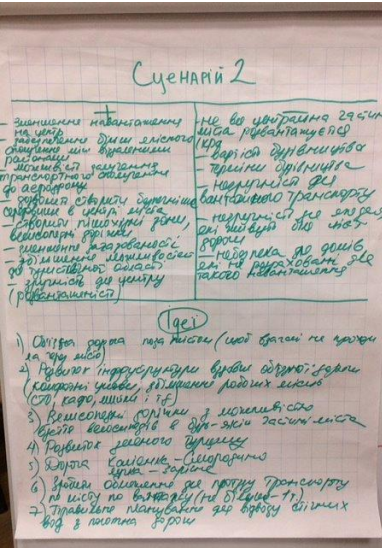 Сценарій 2
+
-
- зменшення навантаження
на центр
- забезпечення більш якісного
сполучення між віддаленими
районами
- можливість
транспортного сполучення
до аеродрому
- дозволить створити
в центрі міста
- створити пішохідні зони,
велосипедні доріжки
- зменшення загазованості
- збільшення можливостей
для туристичної
- зручність для центру
(розвантаженість)
не вся центральна частина
міста розвантажується
- вартість будівництва
- терміни будівництва
- незручність для
вантажного транспорту
- незручність для людей
які живуть біля
дороги
- небезпека для домів
які не розраховані для
такого навантаження
Ідеї
1) Об'їзна дорога поза містом (щоб не
через місто)
2) Розвиток інфраструктури вздовж об'їзної дороги
збільшення робочих місць
(СТО, кафе, мийки і т.д)
3) Велосипедні доріжки з можливістю
взяти велосипедів в будь-якій частині міста
4) Розвиток зеленого туризму
5) Дорога Калинка - Смородино
6) Зробити обмеження для транспорту
по місту по вантажу (не більше - 1т.)
7) Правильне планування для відводу стічних
вод з полотна дороги